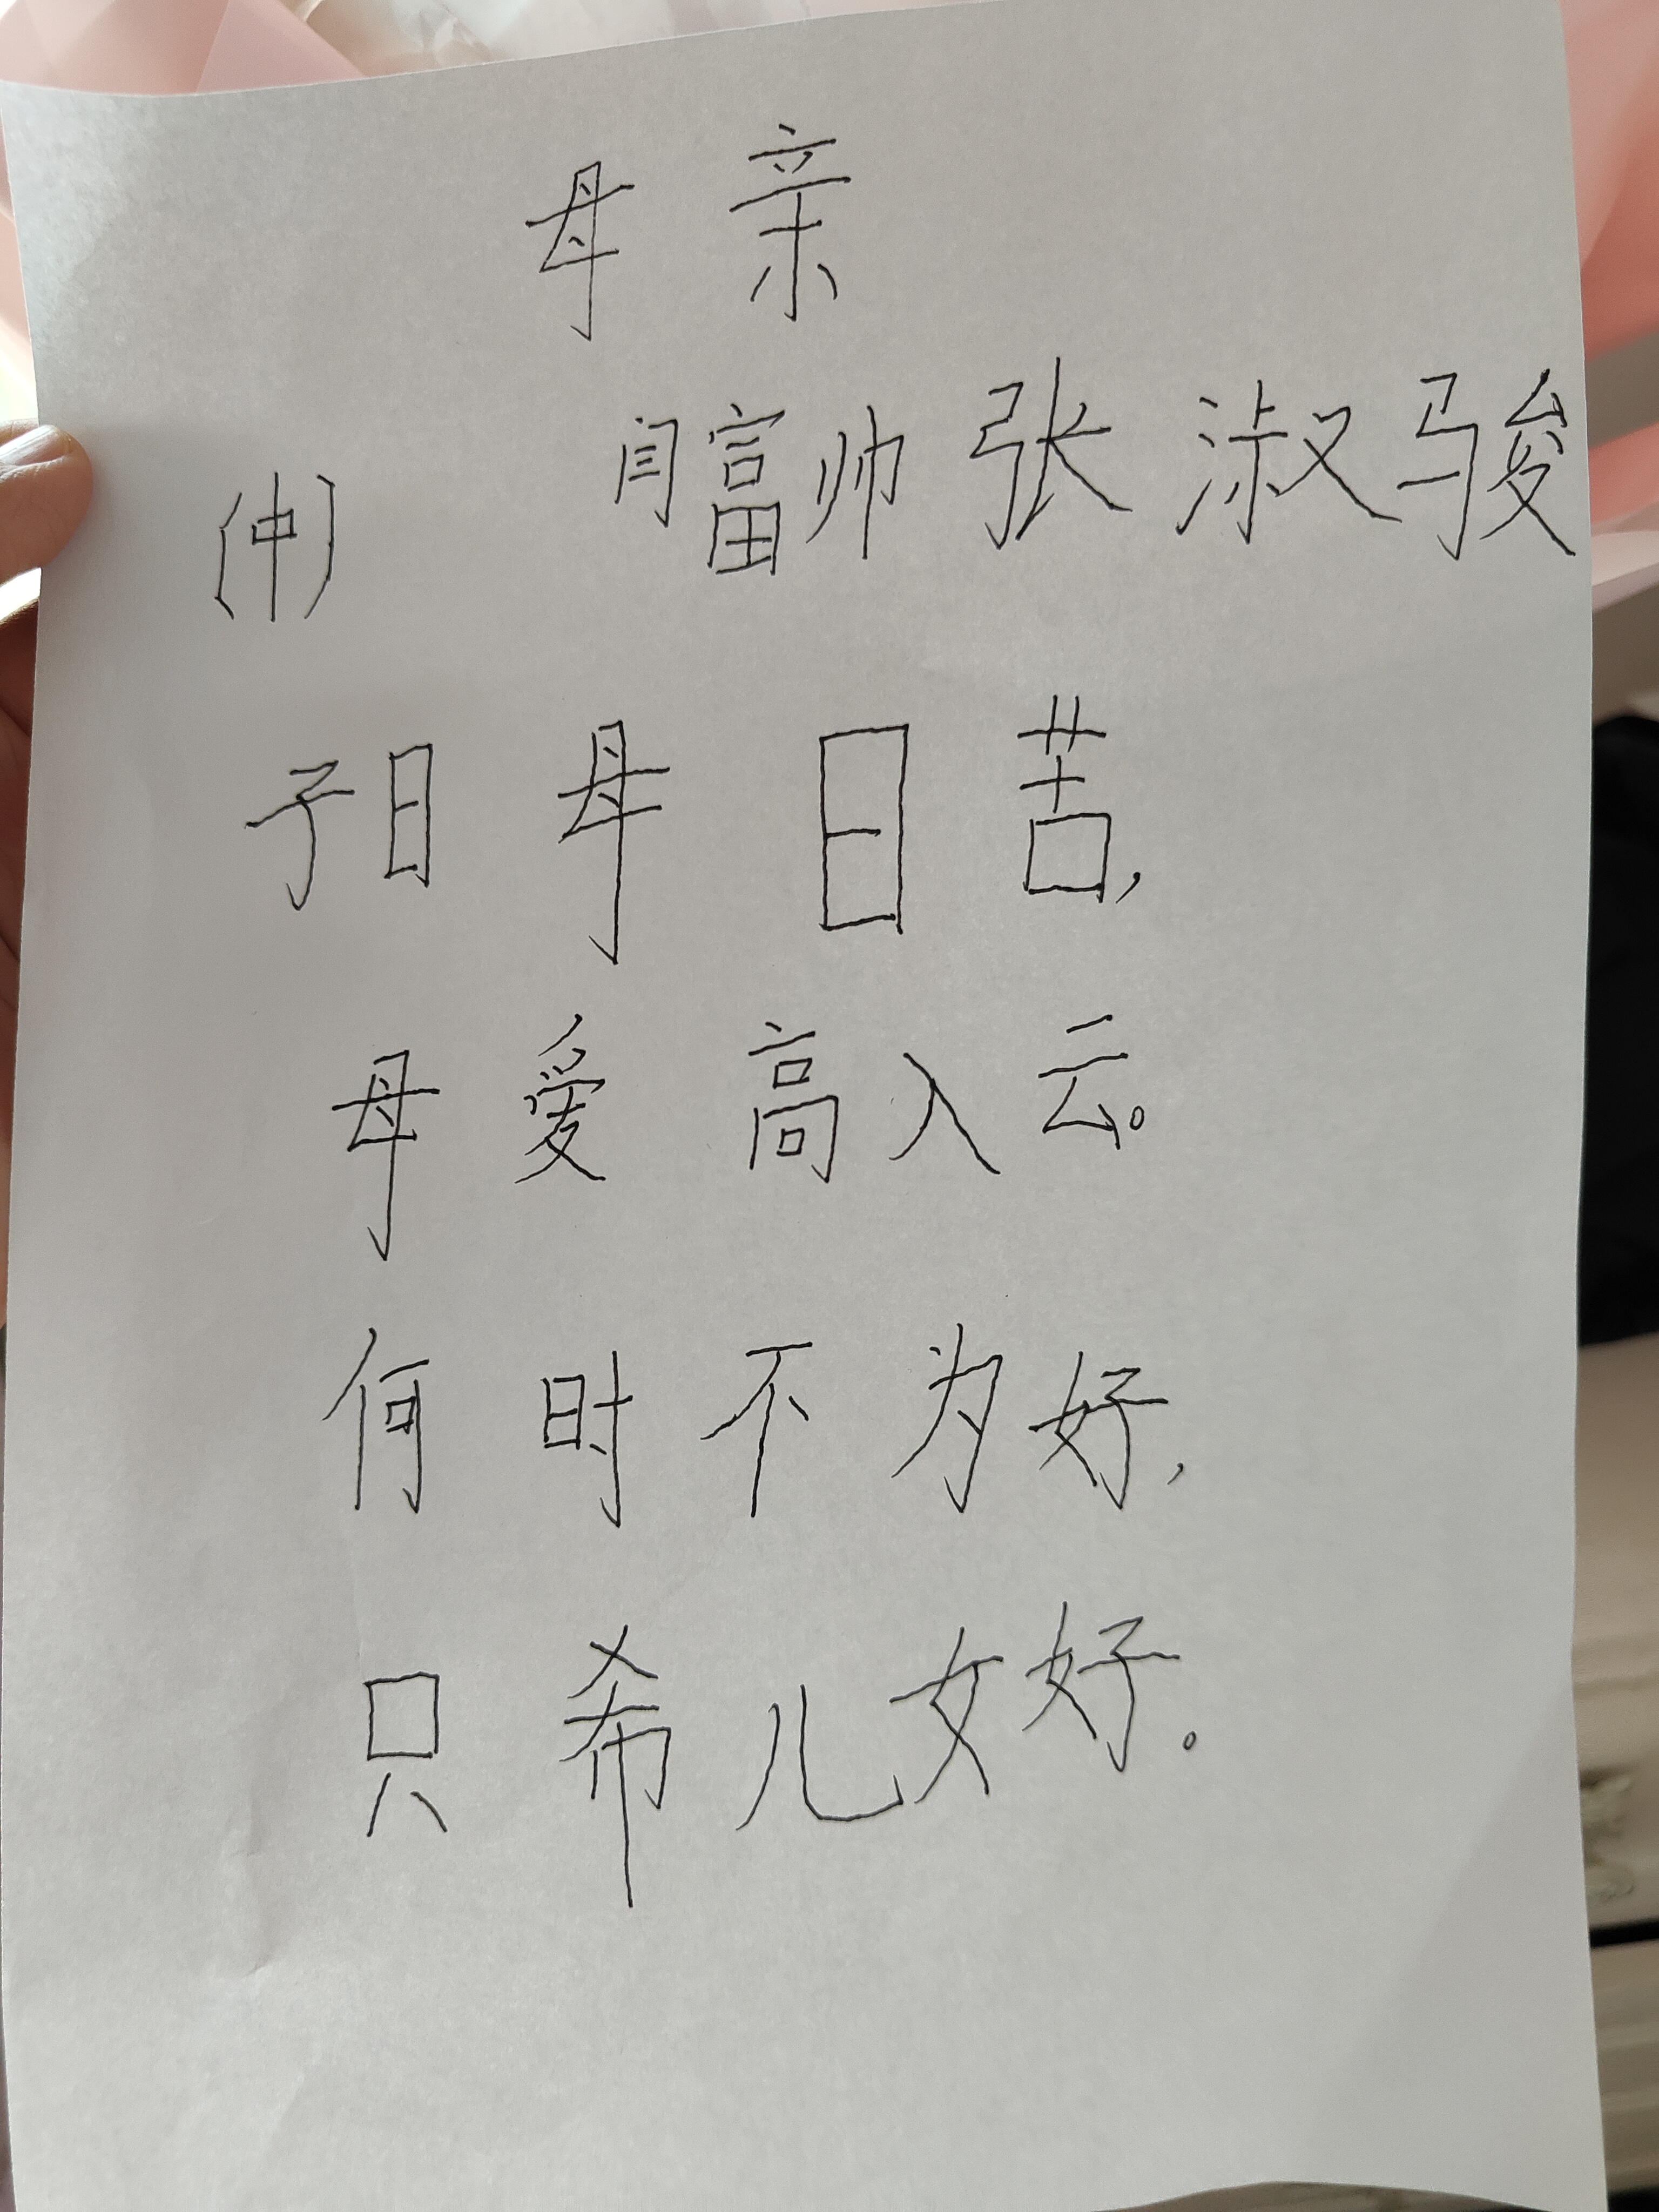 母亲
闫富帅 张淑骏
(中)
子日母日苦,
母爱高入云。
何时不为好,
只希儿女好。